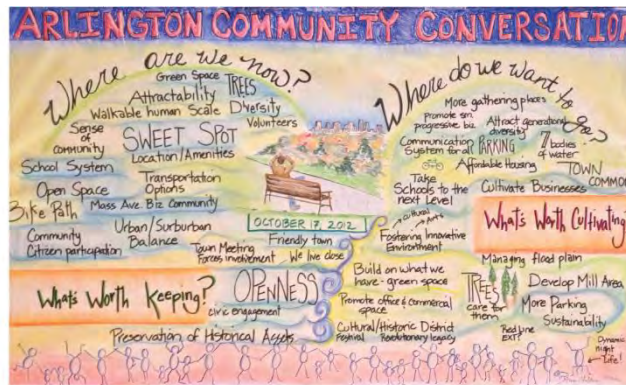 ARLINGTON COMMUNITY CONVERSATION
Where are we now?
Green Space TREES
Attractability
Diversity
Walkable human Scale
Volunteers
Sense of community
SWEET SPOT
Location/Amenities
School System
Open Space
Transportation Options
Bike Path
Mass Ave. Biz Community
Community
Citizen participation
Urban/Surburban Balance
Town Meeting
Forces involvement
Friendly town
We live close
OCTOBER 17, 2012
What's Worth Keeping?
OPENNESS
civic engagement
Preservation of Historical Assets
Where do we want to go?
More gathering places
Promote sm. progressive biz.
Attract generational diversity
Communication System for all
PARKING
7 bodies of water
Affordable Housing
TOWN COMMON
Take Schools to the next Level
Cultivate Businesses
cultural
Arts
Fostering Innovative Environment
What's Worth Cultivating
Managing flood plain
Build on what we have - green space
TREES
care for them
Develop Mill Area
Promote office & commercial space
More Parking
Sustainability
Cultural/Historic District
Festival Revolutionary legacy
Red Line EXT?
Dynamic night Life!